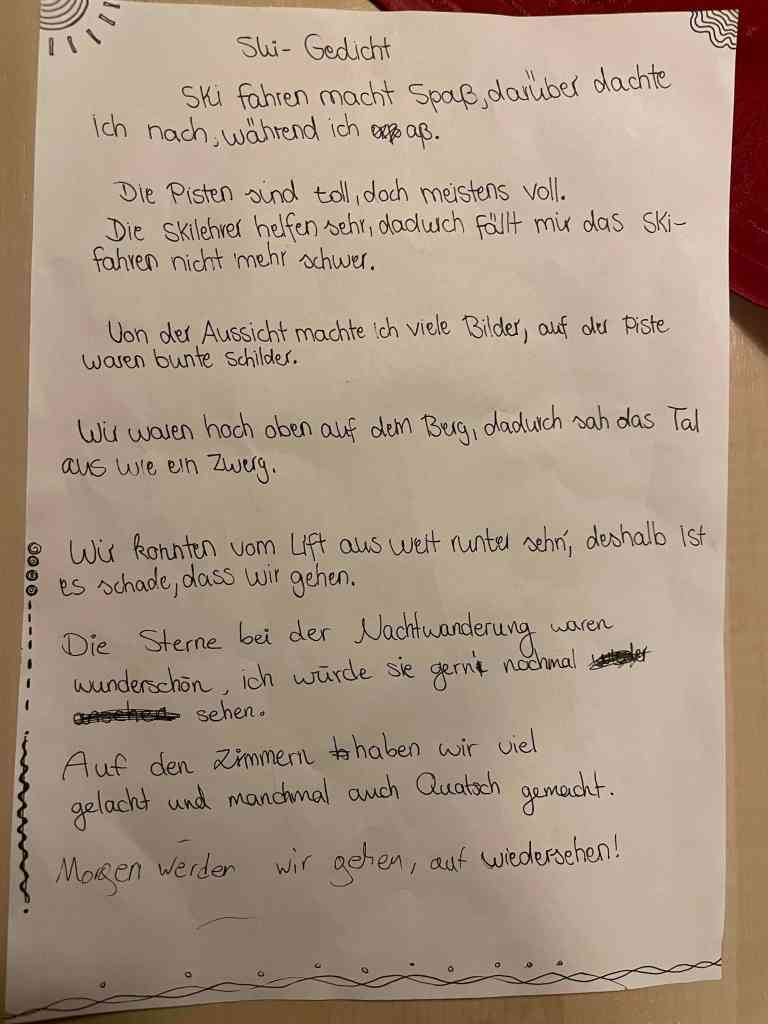 Ski-Gedicht
Ski fahren macht Spaß, darüber dachte
ich nach, während ich aß.
Die Pisten sind toll, doch meistens voll.
Die Skilehrer helfen sehr, dadurch fällt mir das Ski-
fahren nicht mehr schwer.
Von der Aussicht machte ich viele Bilder, auf der Piste
waren bunte Schilder.
Wir waren hoch oben auf dem Berg, dadurch sah das Tal
aus wie ein Zwerg.
Wir konnten vom Lift aus weit runter sehn', deshalb ist
es schade, dass wir gehen.
Die Sterne bei der Nachtwanderung waren
wunderschön, ich würde sie gern nochmal
sehen.
Auf den Zimmern haben wir viel
gelacht und manchmal auch Quatsch gemacht.
Morgen werden wir gehen, auf wiedersehen!